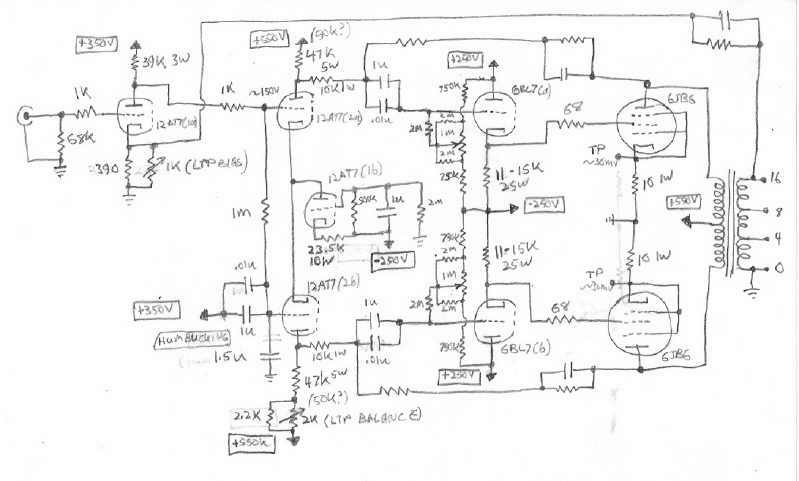 +350V
39K 3W
1K
68K
12AT7(1a)
390
1K (LTP BIAS)
1K
~150V
+550V
(50K?)
47K
5W
10K 1W
1u
.01u
12AT7(2a)
12AT7(1b)
500K
1u
2M
23.5K
10W
-250V
1M
.01u
+350V
1u
HUM BUCKING
1.5u
12AT7(2b)
10K 1W
1u
.01u
47K 5W
(50K?)
2.2K
2K (LTP BALANCE)
+550V
+250V
750K
2M
1M
2M
2M
75K
6BL7(a)
11-15K
25W
-250V
11-15K
25W
2M
1M
2M
2M
6BL7(b)
+250V
68
68
6JB6
TP
~30mV
10 1W
10 1W
TP
~30mV
6JB6
+550V
16
8
4
0